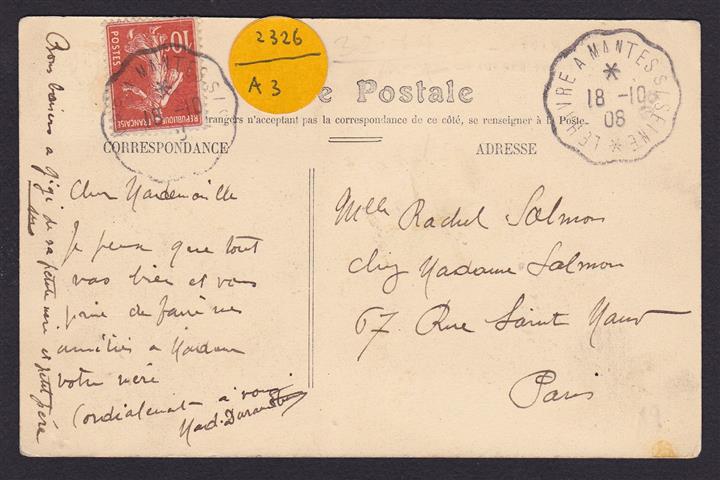 2326
A3
10
POSTES
REPUBLIQUE FRANÇAISE
MANTES
18 -10
LE HAVRE A MANTES S SEINE
18 -10
08
e Postale
étrangers n'acceptant pas la correspondance de ce côté, se renseigner à la Poste
CORRESPONDANCE
ADRESSE
Cher Mademoiselle
Je pense que tout
vas bien et vous
prie de faire mes
amitiés a Madame
votre mère
Cordialement a vous
Mlle Rachel Salmon
chez Madame Salmon
67 Rue Saint Maur
Paris
Bons baisers a Gigi de sa petite mere et petit père